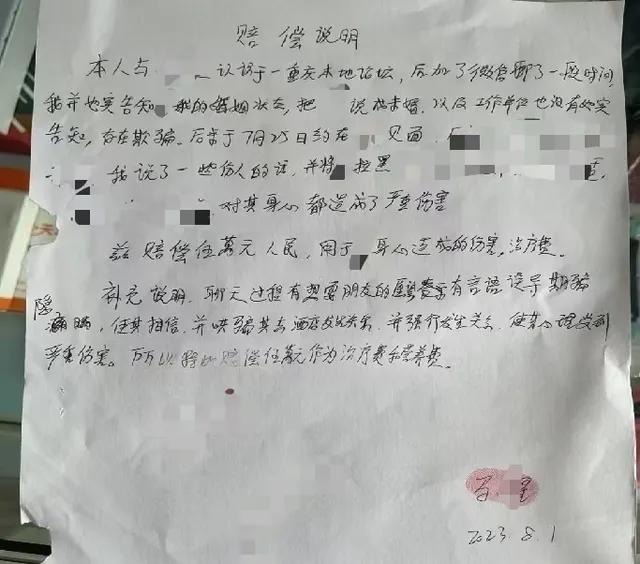 赔偿说明
本人与 认识于一重庆本地论坛，后加了微信聊了一段时间
我并如实告知 我的婚姻状态，把 说成未婚．以及工作单位也没有如实
告知，存在欺骗。后来于7月25日约在 见面．
我说了一些伤人的话，并将 拉黑
对其身心都造成了严重伤害
兹赔偿伍萬元人民，用于 身心造成的伤害．治疗费。
补充说明．聊天过程有想要朋友的 有言语误导 欺骗
隐瞒，使其相信，并哄骗其去酒店发生关系．并强行发生关系．使其心理受到
严重伤害。所以 赔偿伍萬元作为治疗费和营养费。
2023.8.1